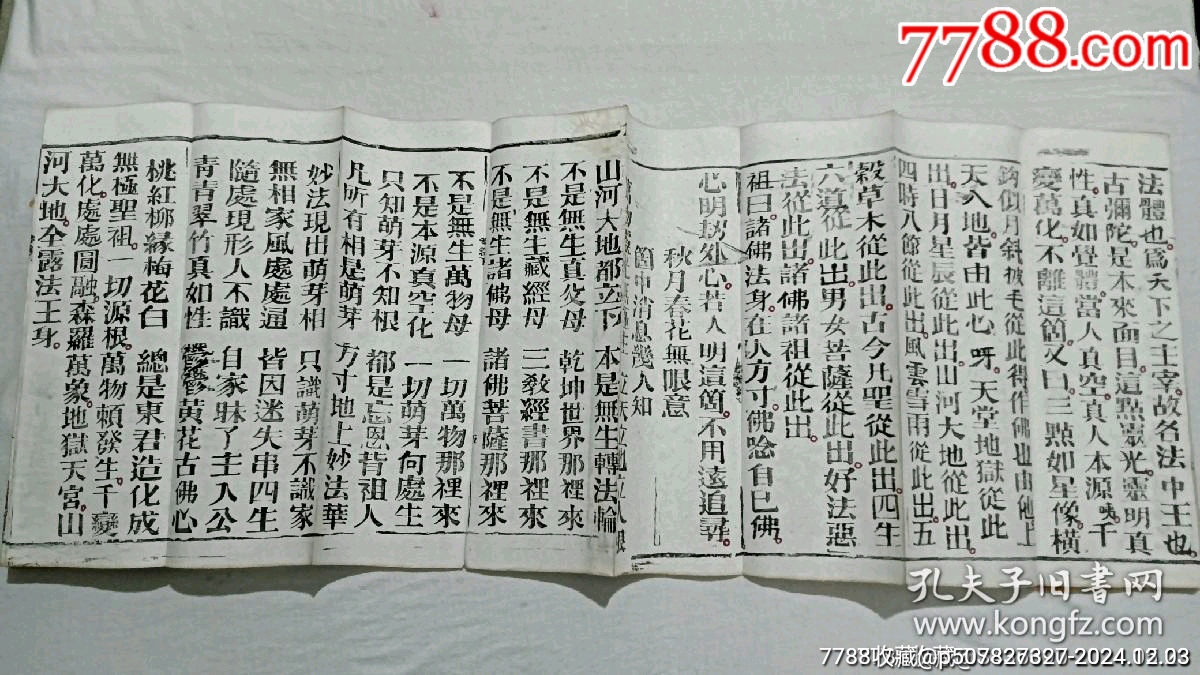 法體也爲天下之主宰故各法中王也
古彌陀是本來面目這點靈光靈明真
性真如覺體當人真空真人本源 千
變萬化不離這箇又曰三點如星像橫
鈎似月斜披毛從此得作佛也由他上
天入地皆由此心呀天堂地獄從此
出日月星辰從此出山河大地從此出
四時八節從此出風雲雪雨從此出五
穀草木從此出古今凡聖從此出四生
六道從此出男女菩薩從此出好法惡
法從此出諸佛諸祖從此出
祖曰諸佛法身在人方寸佛唸自己佛
心明被外心若人明這箇不用遠追尋
秋月春花無限意
箇中消息幾人知
山河大地都立下 本是無生轉法輪
不是無生真父母 乾坤世界那裡來
不是無生藏經母 三教經書那裡來
不是無生諸佛母 諸佛菩薩那裡來
不是無生萬物母 一切萬物那裡來
不是本源真空化 一切萌芽何處生
只知萌芽不知根 都是忘恩背祖人
凡所有相是萌芽 方寸地上妙法華
妙法現出萌芽相 只識萌芽不識家
無相家風處處通 皆因迷失串四生
隨處現形人不識 自家昧了主人公
青青翠竹真如性 黃花古佛心
桃紅柳緑梅花白 總是東君造化成
無極聖祖一切源根萬物頼發生千變
萬化處處圓融森羅萬象地獄天宮山
河大地全露法王身
7788.com
孔夫子旧书网
www.kongfz.com
7788收藏@p507827327-2024.12.03